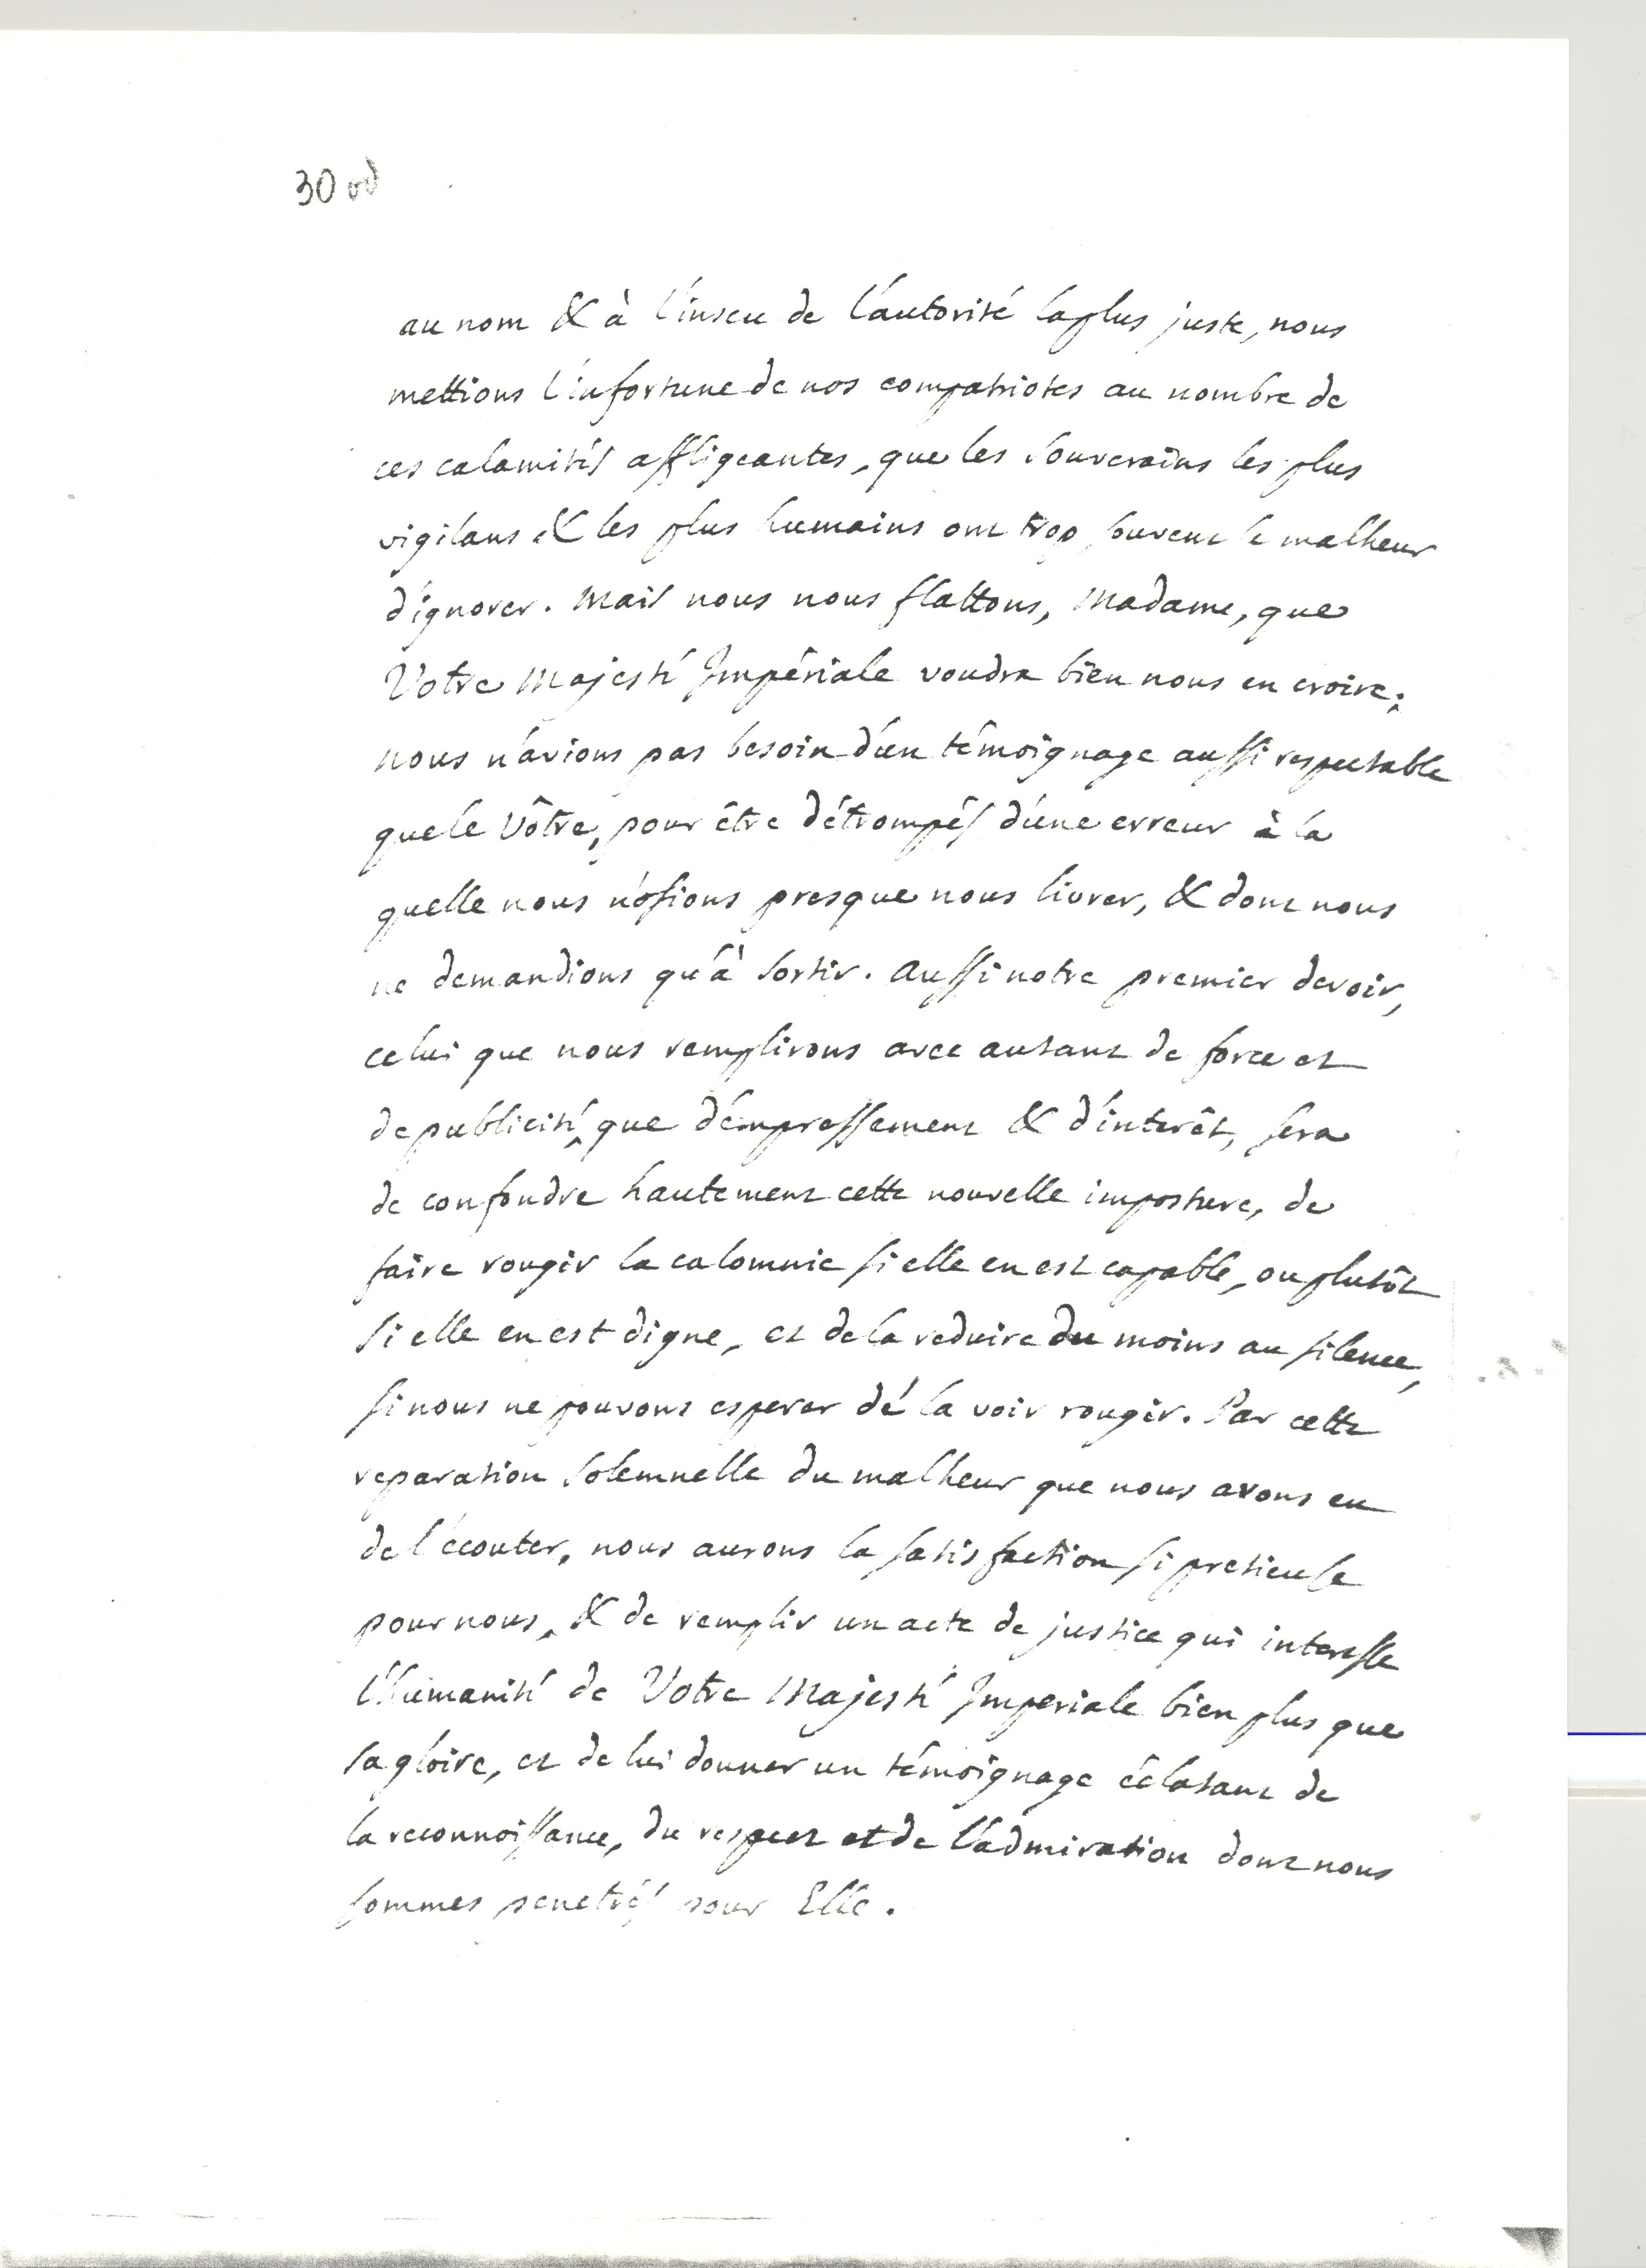 30 od
au nom & à l'insçu de l'autorité la plus juste, nous
mettions l'infortune de nos compatriotes au nombre de
ces calamités affligeantes, que les Souverains les plus
vigilans & les plus humains ont trop souvent le malheur
d'ignorer. Mais nous nous flattons, Madame, que
Votre Majesté Impériale voudra bien nous en croire;
nous n'avions pas besoin d'un témoignage aussi respectable
que le Vôtre, pour être détrompés d'une erreur à la
quelle nous n'osions presque nous livrer, & dont nous
ne demandions qu'à sortir. Aussi notre premier devoir,
celui que nous remplirons avec autant de force et
de publicité, que d'empressement & d'interêt, sera
de confondre hautement cette nouvelle imposture, de
faire rougir la calomnie si elle en est capable, ou plutôt
si elle en est digne, et de la reduire du moins au silence,
si nous ne pouvons esperer dé la voir rougir. Par cette
reparation solemnelle du malheur que nous avons eu
de l'écouter, nous aurons la satisfaction si pretieuse
pour nous, & de remplir un acte de justice qui interesse
l'humanité de Votre Majesté Imperiale bien plus que
sa gloire, et de lui donner un témoignage éclatant de
la reconnoissance, du respect et de l'admiration dont nous
sommes penetrés pour Elle.